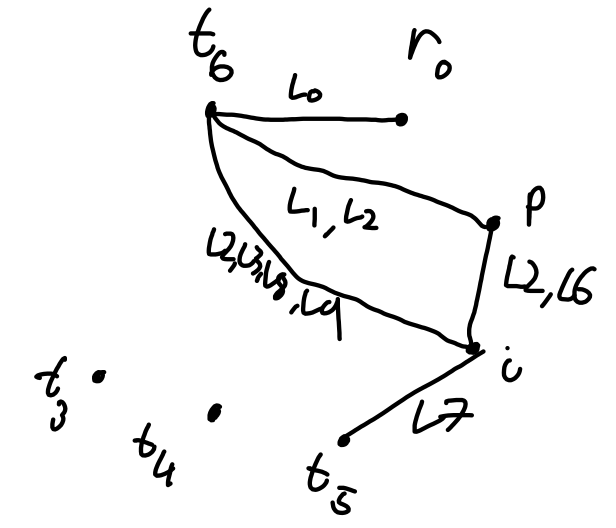 t6
r0
L0
L1, L2
P
L2, L3, L8, L9
L2, L6
i
t3
L7
t4
t5